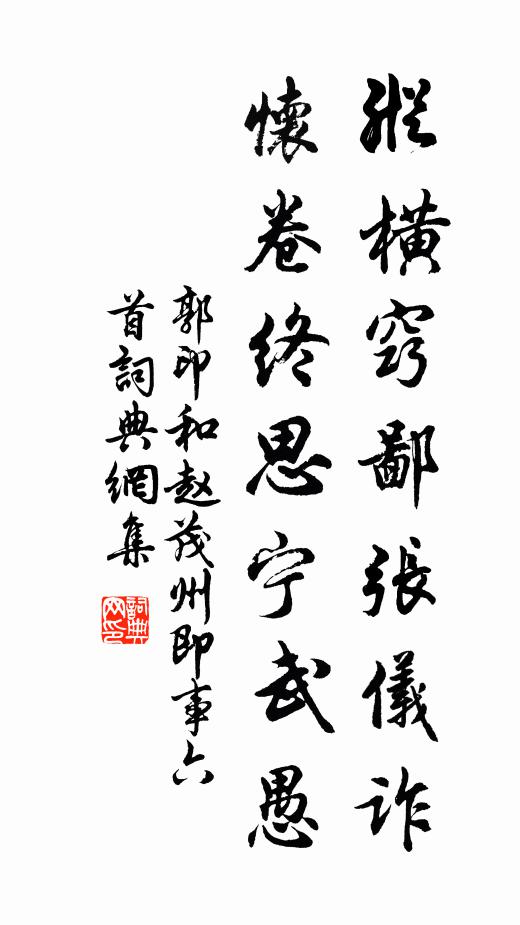 縱橫窃鄙張儀詐
懷卷終思宁武愚
郭印和赵茂州即事六
首詞典網集
詞典
网印